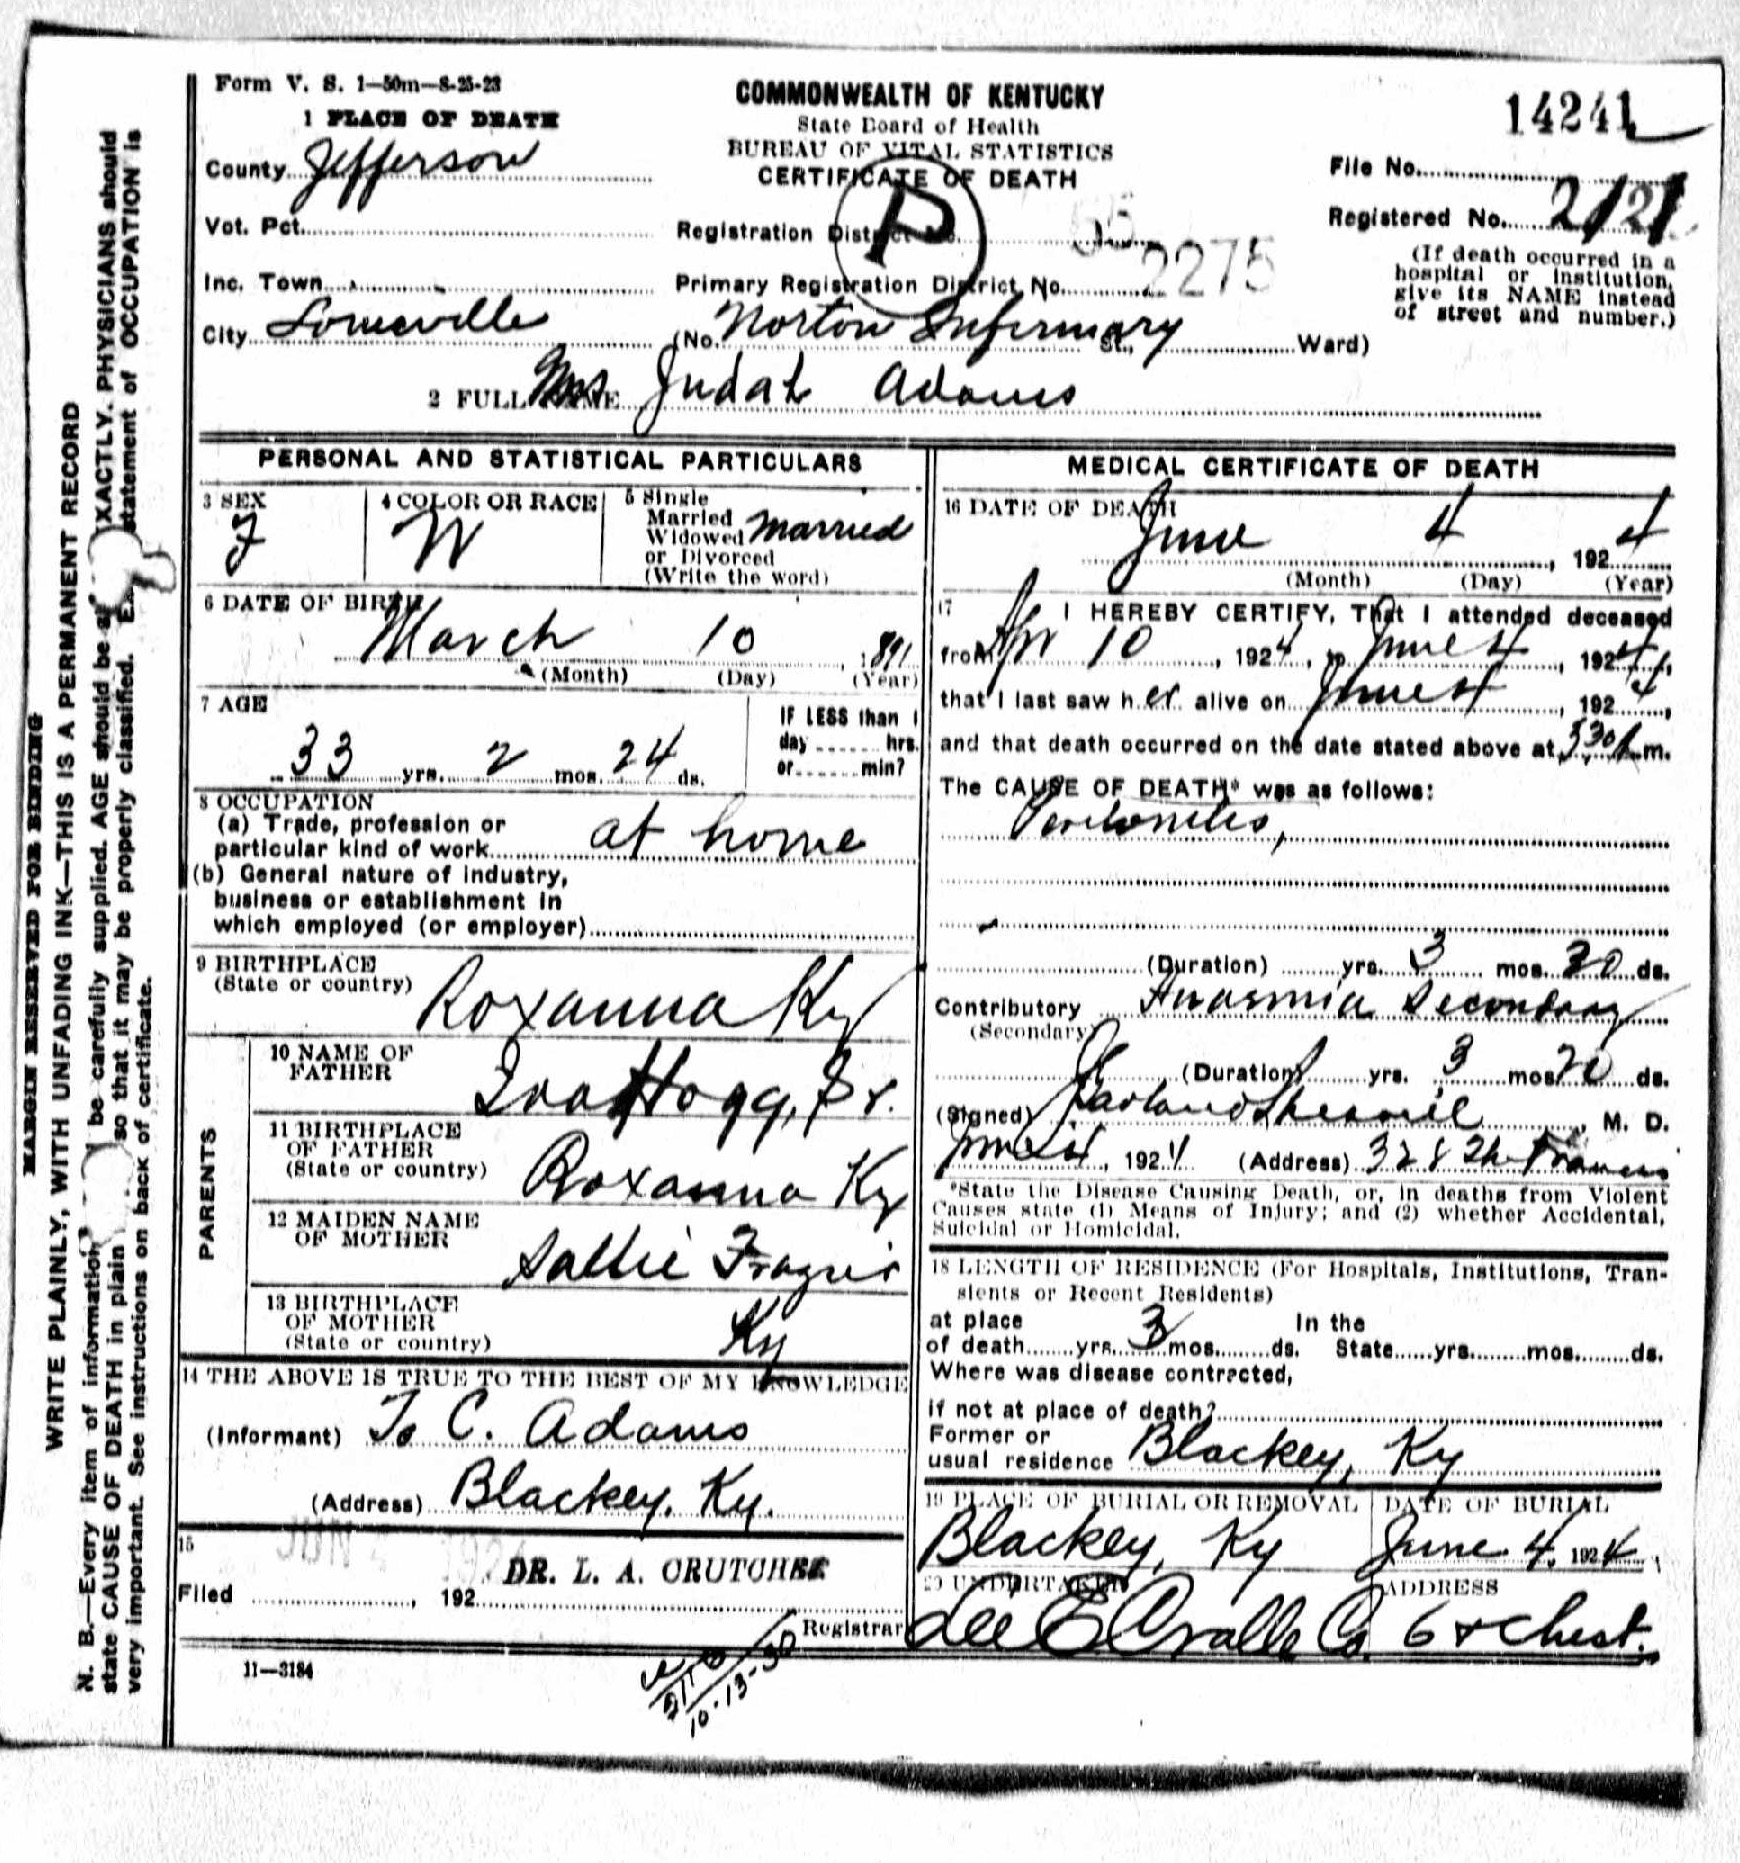 Form V. S. 1—50m—8-25-23
COMMONWEALTH OF KENTUCKY
State Board of Health
BUREAU OF VITAL STATISTICS
CERTIFICATE OF DEATH
14241
File No.
Registered No. 2121
(If death occurred in a hospital or institution, give its NAME instead of street and number.)
1 PLACE OF DEATH
County Jefferson
Vot. Pct.
Registration District No.
P
Inc. Town
Primary Registration District No. 2275
City Louisville (No. Norton Infirmary St., Ward)
2 FULL NAME Mrs Judah Adams
PERSONAL AND STATISTICAL PARTICULARS
3 SEX F
4 COLOR OR RACE W
5 Single Married Widowed or Divorced (Write the word) Married
6 DATE OF BIRTH
March 10, 1891
(Month) (Day) (Year)
7 AGE
33 yrs. 2 mos. 24 ds.
IF LESS than 1 day hrs. or min?
8 OCCUPATION
(a) Trade, profession or particular kind of work at home
(b) General nature of industry, business or establishment in which employed (or employer)
9 BIRTHPLACE
(State or country) Roxanna Ky
PARENTS
10 NAME OF FATHER Ira Hogg, Sr.
11 BIRTHPLACE OF FATHER (State or country) Roxanna Ky
12 MAIDEN NAME OF MOTHER Sallie Frazier
13 BIRTHPLACE OF MOTHER (State or country) Ky
14 THE ABOVE IS TRUE TO THE BEST OF MY KNOWLEDGE
(Informant) C. Adams
(Address) Blackey, Ky.
15
Filed , 192 DR. L. A. CRUTCHER
Registrar
11—3184
10-13-30
MEDICAL CERTIFICATE OF DEATH
16 DATE OF DEATH
June 4, 1924
(Month) (Day) (Year)
17 I HEREBY CERTIFY, That I attended deceased
from Apr 10, 1924, to June 4, 1924,
that I last saw her alive on June 4, 1924,
and that death occurred on the date stated above at 530 m.
The CAUSE OF DEATH* was as follows:
Peritonitis,
(Duration) yrs. 3 mos. 20 ds.
Contributory Anaemia Secondary
(Secondary)
(Duration) yrs. 3 mos 20 ds.
(Signed) M. D.
June 4, 1924 (Address) 328 The Francis
*State the Disease Causing Death, or, in deaths from Violent Causes state (1) Means of Injury; and (2) whether Accidental, Suicidal or Homicidal.
18 LENGTH OF RESIDENCE (For Hospitals, Institutions, Transients or Recent Residents)
at place of death yrs. 3 mos. ds. In the State yrs. mos. ds.
Where was disease contracted,
if not at place of death?
Former or usual residence Blackey, Ky
19 PLACE OF BURIAL OR REMOVAL Blackey, Ky
DATE OF BURIAL June 4, 1924
20 UNDERTAKER Lee E Cralle Co.
ADDRESS 6 & Chest.
MARGIN RESERVED FOR BINDING
WRITE PLAINLY, WITH UNFADING INK—THIS IS A PERMANENT RECORD
N. B.—Every item of information be carefully supplied. AGE should be EXACTLY. PHYSICIANS should
state CAUSE OF DEATH in plain so that it may be properly classified. statement of OCCUPATION is
very important. See instructions on back of certificate.